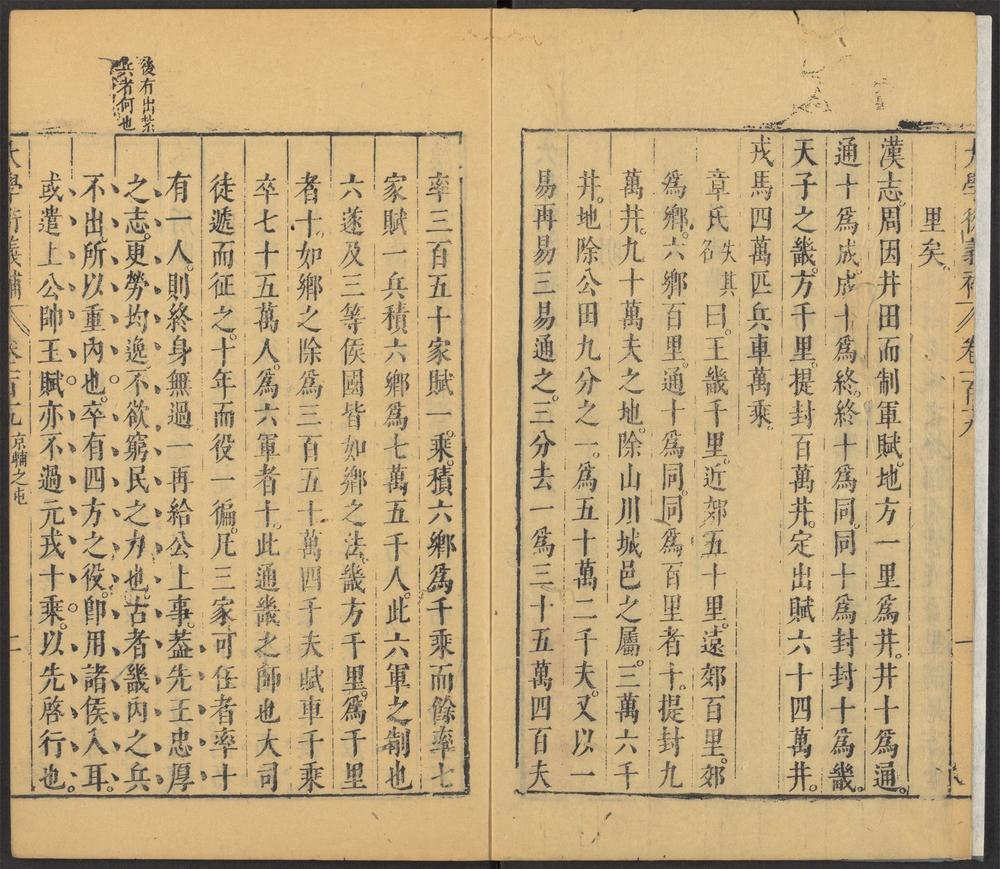 大學衍義補 卷一百十九
里矣。
漢志。周因井田而制軍賦。地方一里為井。井十為通。
通十為成。成十為終。終十為同。同十為封。封十為畿。
天子之畿。方千里。提封百萬井。定出賦六十四萬井。
戎馬四萬匹兵車萬乘。
章氏失其名曰。王畿千里。近郊五十里。遠郊百里。郊
為鄉。六鄉百里。通十為同。同為百里者十。提封九
萬井。九十萬夫之地。除山川城邑之屬。三萬六千
井。地除公田九分之一。為五十萬二千夫。又以一
易再易三易通之。三分去一為三十五萬四百夫
率三百五十家賦一。乘。積六鄉為千乘而餘率七
家賦一兵積六鄉為七萬五千人。此六軍之制也
六遂及三等侯國皆如鄉之法。畿方千里。為千里
者十。如鄉之除為三百五十萬四千夫賦車千乘
卒七十五萬人。為六軍者十。此通畿之師也大司
徒遞而征之。十年而役一徧。凡三家可任者率十
有一人。則終身無過一再給公上事。蓋先王忠厚
之志。更勞均逸。不欲窮民之力也。古者畿內之兵
不出。所以重內也。卒有四方之役。即用諸侯人耳。
或遣上公帥王賦亦不過元戎十乘。以先啓行也。
後有出紮
兵者何也
大學衍義補 卷一百十九 京輔之屯